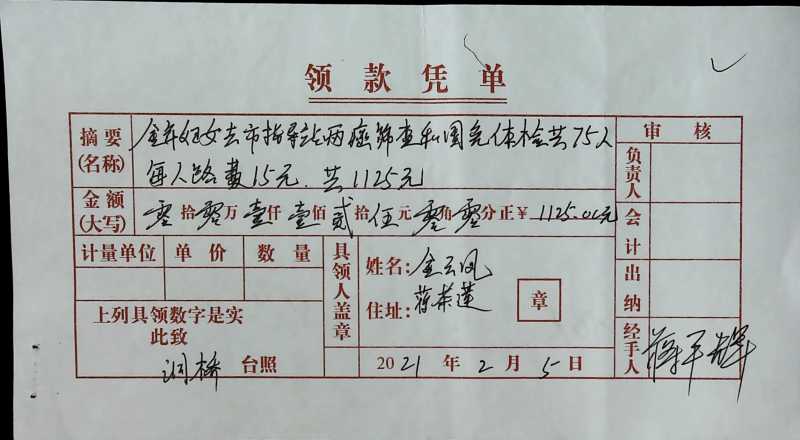 领款凭单
摘要 全年妇女去市指导站两癌筛查和国免体检共75人
(名称) 每人路费15元.共1125元
金额(大写) 零拾零万壹仟壹佰贰拾伍元零角零分正¥1125.00元
计量单位 单价 数量
具领人盖章
姓名:金云凤
住址:蒋荣莲
章
上列具领数字是实
此致
润桥 台照
2021年2月5日
审核
负责人
会计
出纳
经手人 蒋平辉